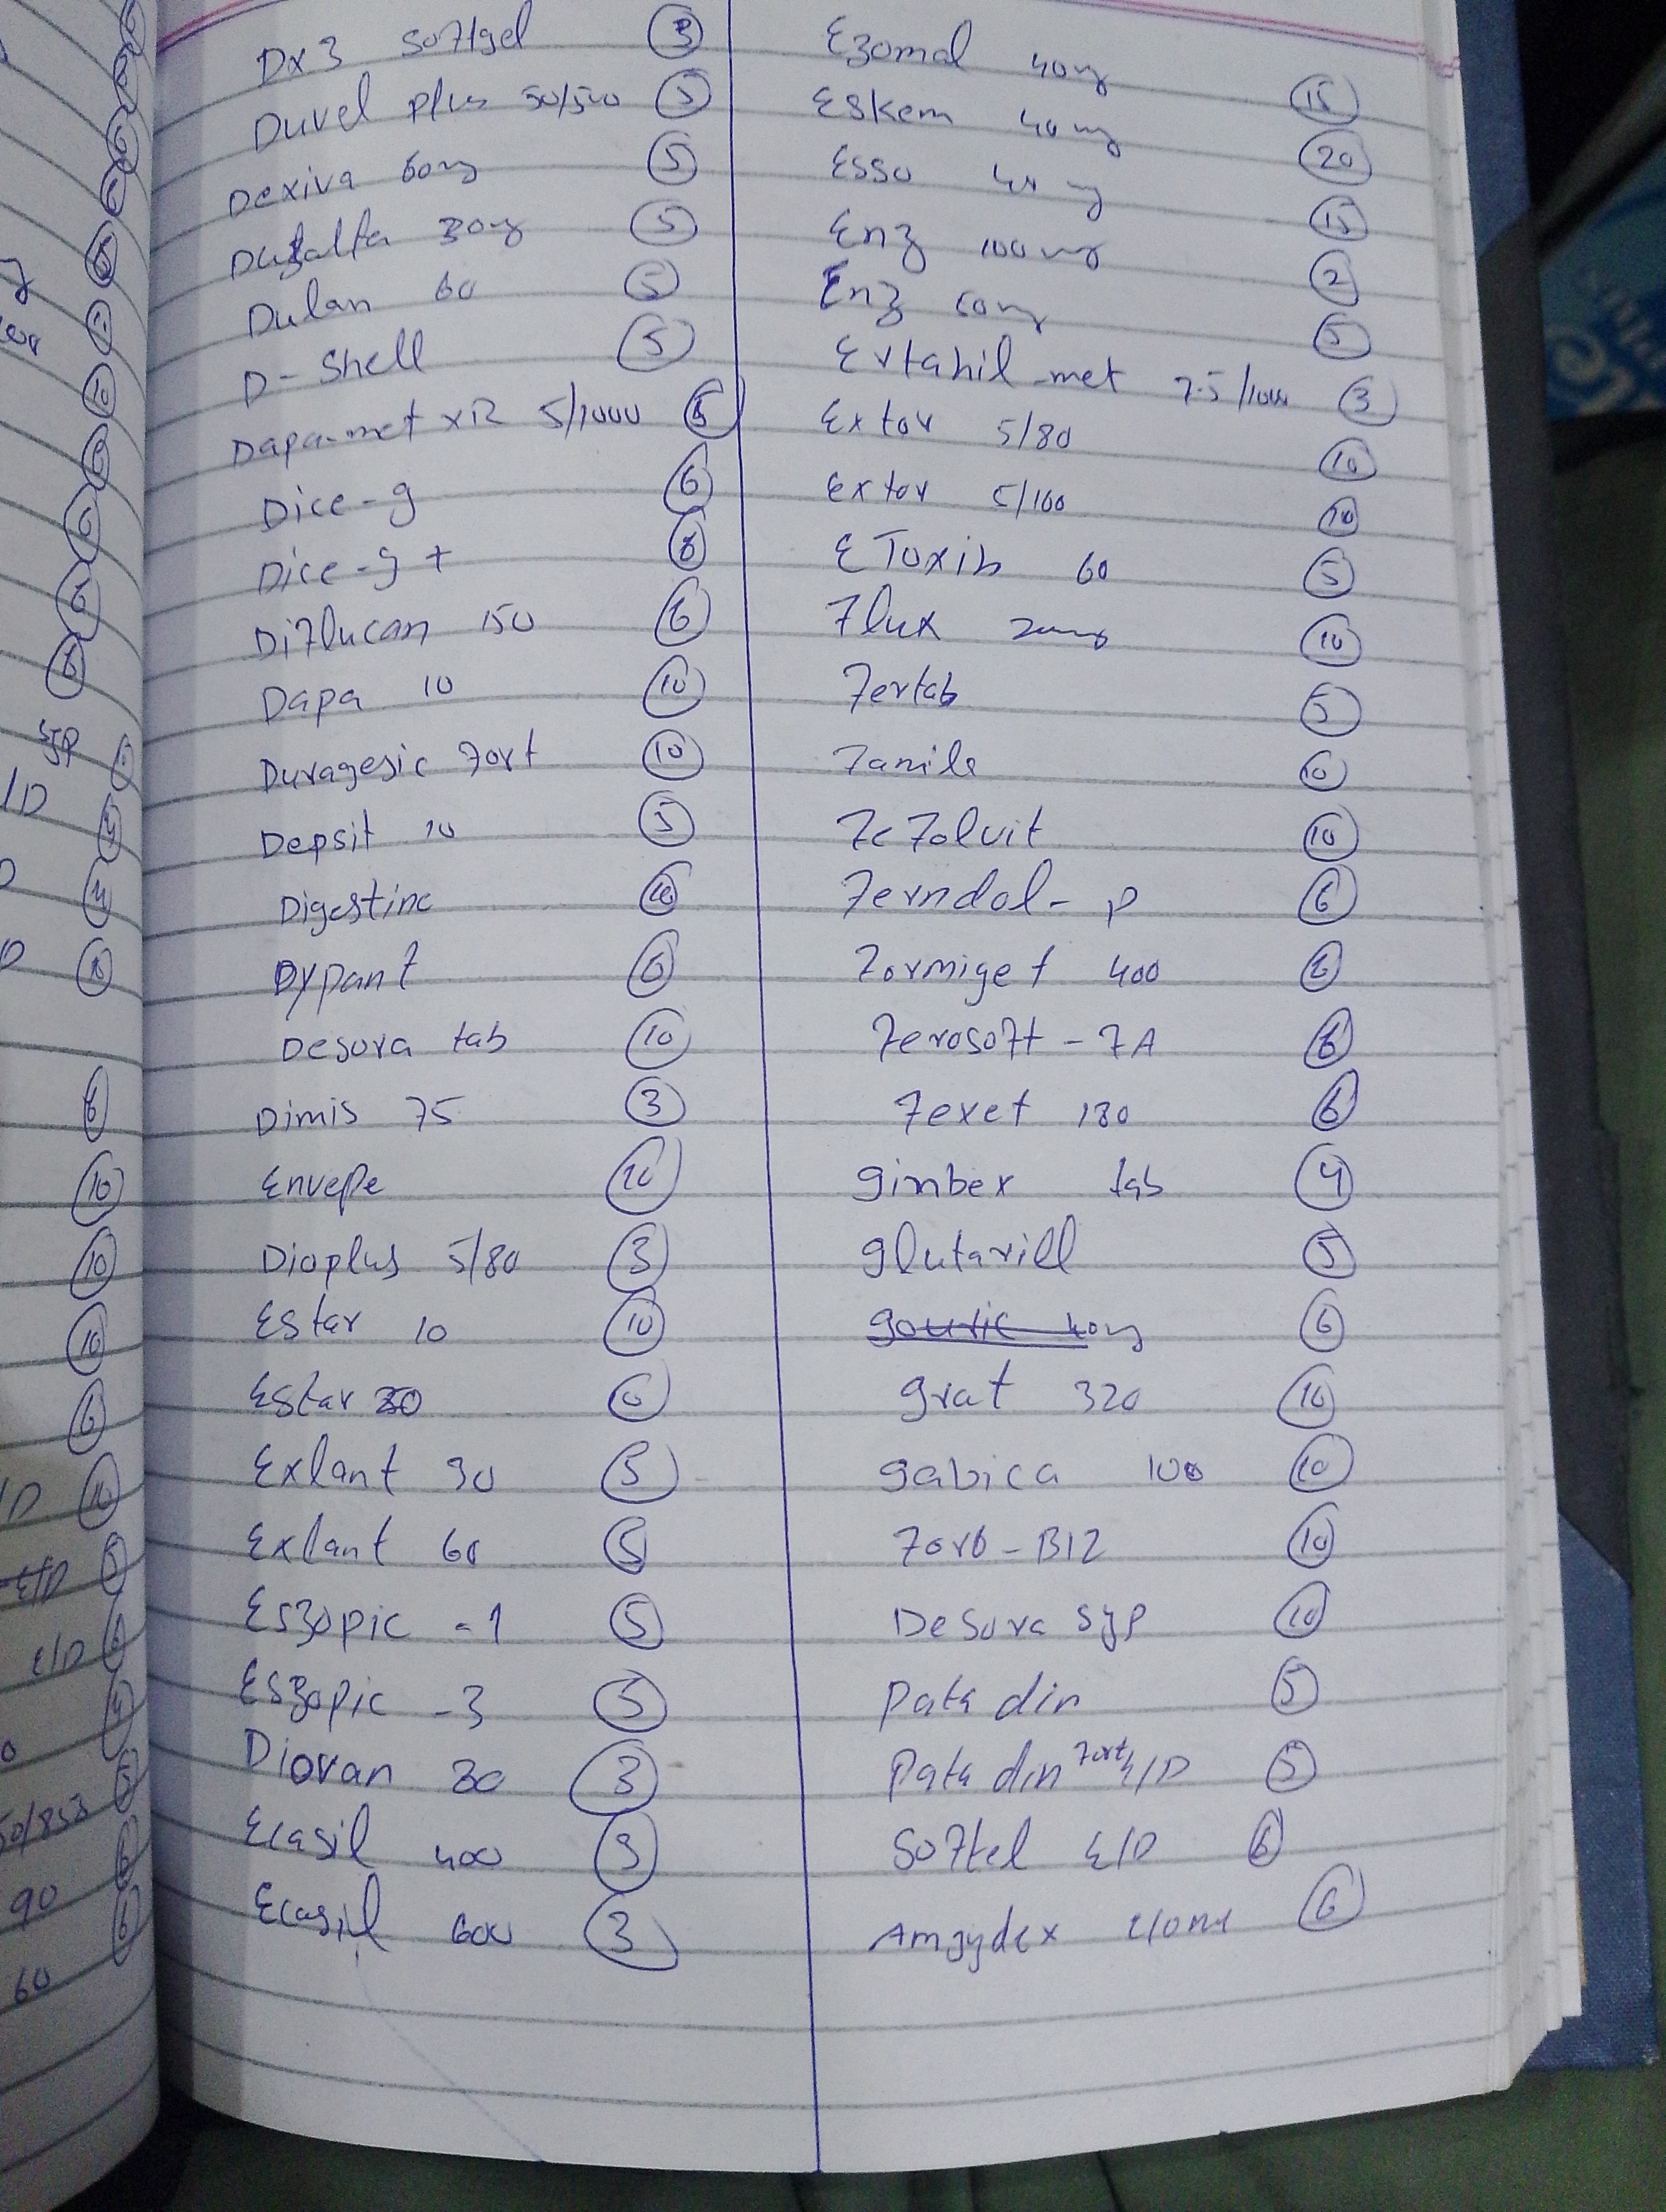 DX3 softgel 3
Duvel plus 50/500 5
Dexiva 60mg 5
30mg 5
Dulan 60 5
D-Shell 5
Dapa-met XR 5/1000 5
Dice-g 6
Dice-g + 6
Diflucan 150 6
Dapa 10 10
Duragesic fort 10
Depsit 10 5
Digestine 10
Dypant 6
Desora tab 10
Dimis 75 3
Envepe 10
Dioplus 5/80 3
Estar 10 10
Estar 20
Exlant 30 5
Exlant 60 5
Eszopic -1 5
Eszopic -3 5
Diovan 3
Ecasil 400 3
Ecasil 600 3
Ezomal 40mg 15
Eskem 40mg 20
Esso 40mg 15
Enz 100mg 2
Enz 50mg 5
met 7.5/1000 3
Extor 5/80 10
Extor 5/160 10
EToxib 60 5
Flux 20mg 10
Fertab 5
Famila 10
Fefolvit 10
Ferndol-p 6
Formiget 400 6
Ferosoft-FA 6
Fexet 180 6
gimbex tab 4
glutarill 5
gouric 40mg 6
grat 320 10
gabica 100 10
Forb-B12 10
Desora syp 10
Patadin 5
Patadin fort E/D 5
Softel E/D 6
6
syp
/D
E/D
50/850
90
60